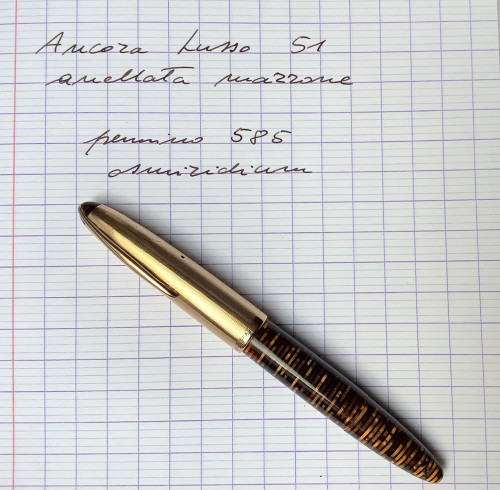 Ancora Lusso 51
anellata marrone
pennino 585
osmiridium